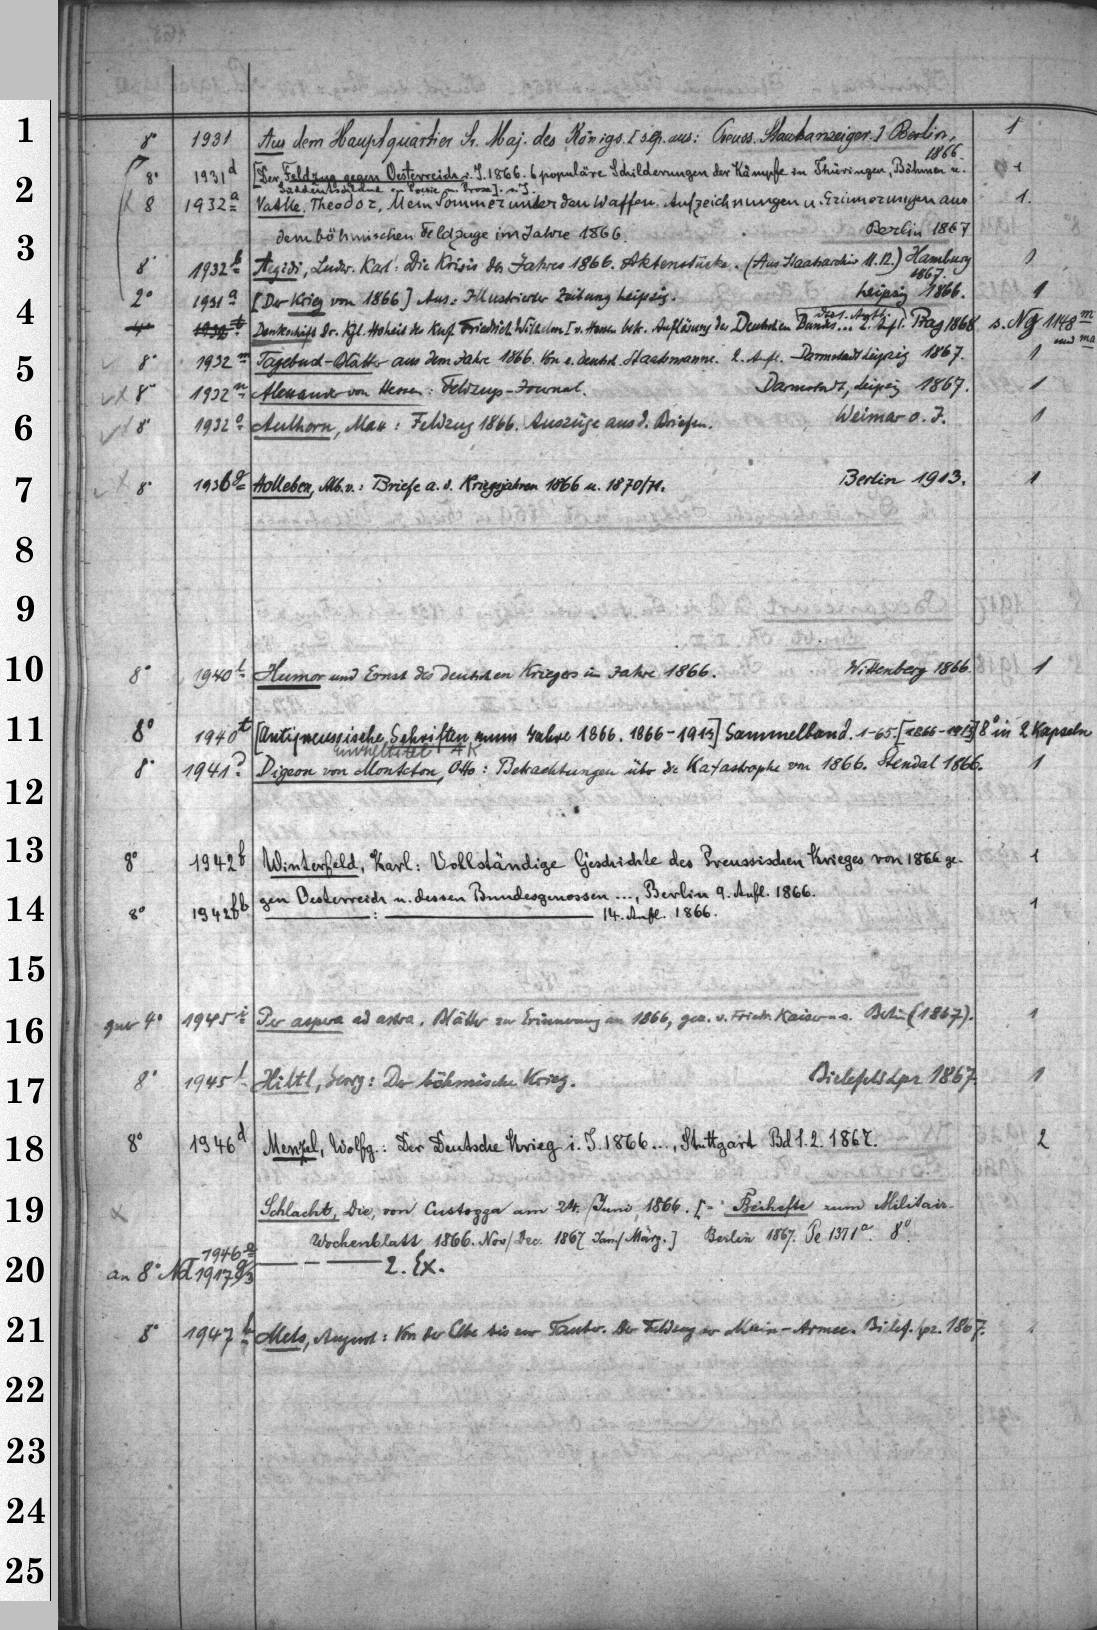 1
8° 1931 Aus dem Hauptquartier Sr. Maj. des Königs. [ aus: Preuss. Staatsanzeiger.] Berlin, 1
1866.
2
8° 1931 d [Der Feldzug gegen Oesterreich i. J. 1866. 6 populäre Schilderungen der Kämpfe in Thüringen, Böhmen u. 1
Süddeutschland in Poesie u. Prosa]. o. J.
8 1932 a Vatke, Theodor, Mein Sommer unter den Waffen. Aufzeichnungen u. Erinnerungen aus 1.
dem böhmischen Feldzuge im Jahre 1866. Berlin 1867
3
8° 1932 b Aegidi, Ludw. Karl: Die Krisis des Jahres 1866. Aktenstücke. (Aus Staatsarchiv 11. 12.) Hamburg 1
1867.
2° 1931 a [Der Krieg von 1866] Aus: Illustrierter Zeitung Leipzig. Leipzig 1866. 1
4
4° Denkschrift Sr. Kgl. Hoheit des Kurf. Friedrich Wilhelm I v. Hessen betr. Auflösung des Deutschen Bundes... 2. Aufl. Prag 1868 s. Ng 1148 m
und ma
5
8° 1932 m Tagebuch-Blätter aus dem Jahre 1866. Von e. deutsch. Staatsmanne. 2. Aufl. Darmstadt Leipzig 1867. 1
8° 1932 n Alexander von Hessen: Feldzugs-Journal. Darmstadt, Leipzig 1867. 1
6
8° 1932 o Aulhorn, Max: Feldzug 1866. Auszüge aus d. Briefen. Weimar o. J. 1
7
8° 1936 g Holleben, Alb. v.: Briefe a. d. Kriegsjahren 1866 u. 1870/71. Berlin 1913. 1
8
9
10
8° 1940 l Humor und Ernst des deutschen Krieges im Jahre 1866. Wittenberg 1866. 1
11
8° 1940 t [Antipreussische Schriften zum Jahre 1866. 1866-1913] Sammelband. 1-65. [1866-1913] 8° in 2 Kapseln
Einzeltitel AK
8° 1941? Digeon von Monteton, Otto: Betrachtungen über die Katastrophe von 1866. Stendal 1866. 1
12
13
8° 1942 b Winterfeld, Karl: Vollständige Geschichte des Preussischen Krieges von 1866 ge- 1
gen Oesterreich u. dessen Bundesgenossen ..., Berlin 9. Aufl. 1866.
14
8° 1942 bb : 14. Aufl. 1866. 1
15
16
quer 4° 1945 i Per aspera ad astra. Blätter zur Erinnerung an 1866, gez. v. Friedr. Kaiser Berlin (1867). 1
17
8° 1945 l Hiltl, Georg: Der böhmische Krieg. Bielefeld Lpz 1867. 1
18
8° 1946 d Menzel, Wolfg.: Der Deutsche Krieg i. J. 1866 ..., Stuttgart Bd 1. 2. 1867. 2
19
Schlacht, Die, von Custozza am 24. Juni 1866. [= Beihefte zum Militair-
Wochenblatt 1866. Nov/Dec. 1867 Jan/März.] Berlin 1867. Pe 1371 a. 8°
20
1946
an 8° Nd 1917 — — — 2. Ex.
21
8° 1947 b Mels, August: Von der Elbe bis zur Tauber. Der Feldzug der Main-Armee. Bielef. Lpz. 1867.
22
23
24
25